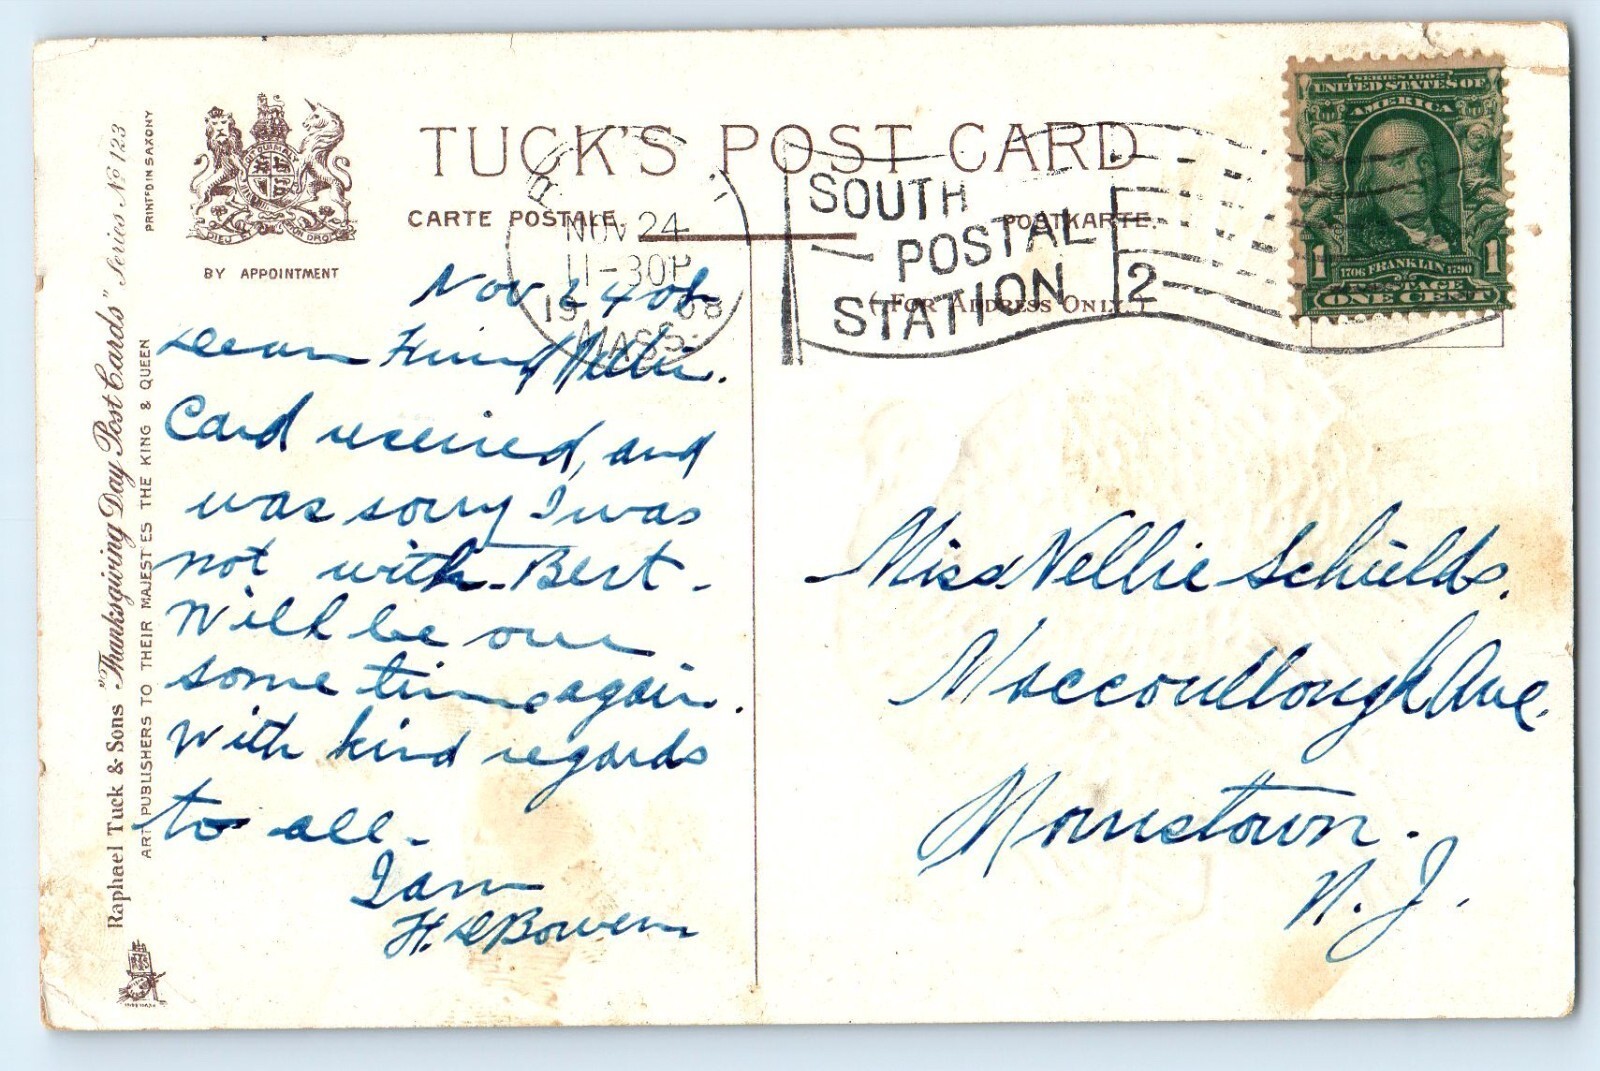 TUCK'S POST CARD
CARTE POSTALE.
POSTKARTE.
(FOR ADDRESS ONLY.)
BY APPOINTMENT
DIEU ET MON DROIT
Raphael Tuck & Sons "Thanksgiving Day Post Cards" Series No 123
ART PUBLISHERS TO THEIR MAJESTIES THE KING & QUEEN
PRINTED IN SAXONY
NOV 24
11-30P
1908
MASS.
SOUTH
POSTAL
STATION
2
SERIES 1902
UNITED STATES OF
AMERICA
1706 FRANKLIN 1790
1 1
POSTAGE
ONE CENT
Nov 24 08
Dear Friend Nellie.
Card received, and
was sorry I was
not with Bert.
Will be our
some time again.
With kind regards
to all.
I am
H. D. Bowen
Miss Nellie Schields.
Maccoullough Ave.
Morristown.
N. J.